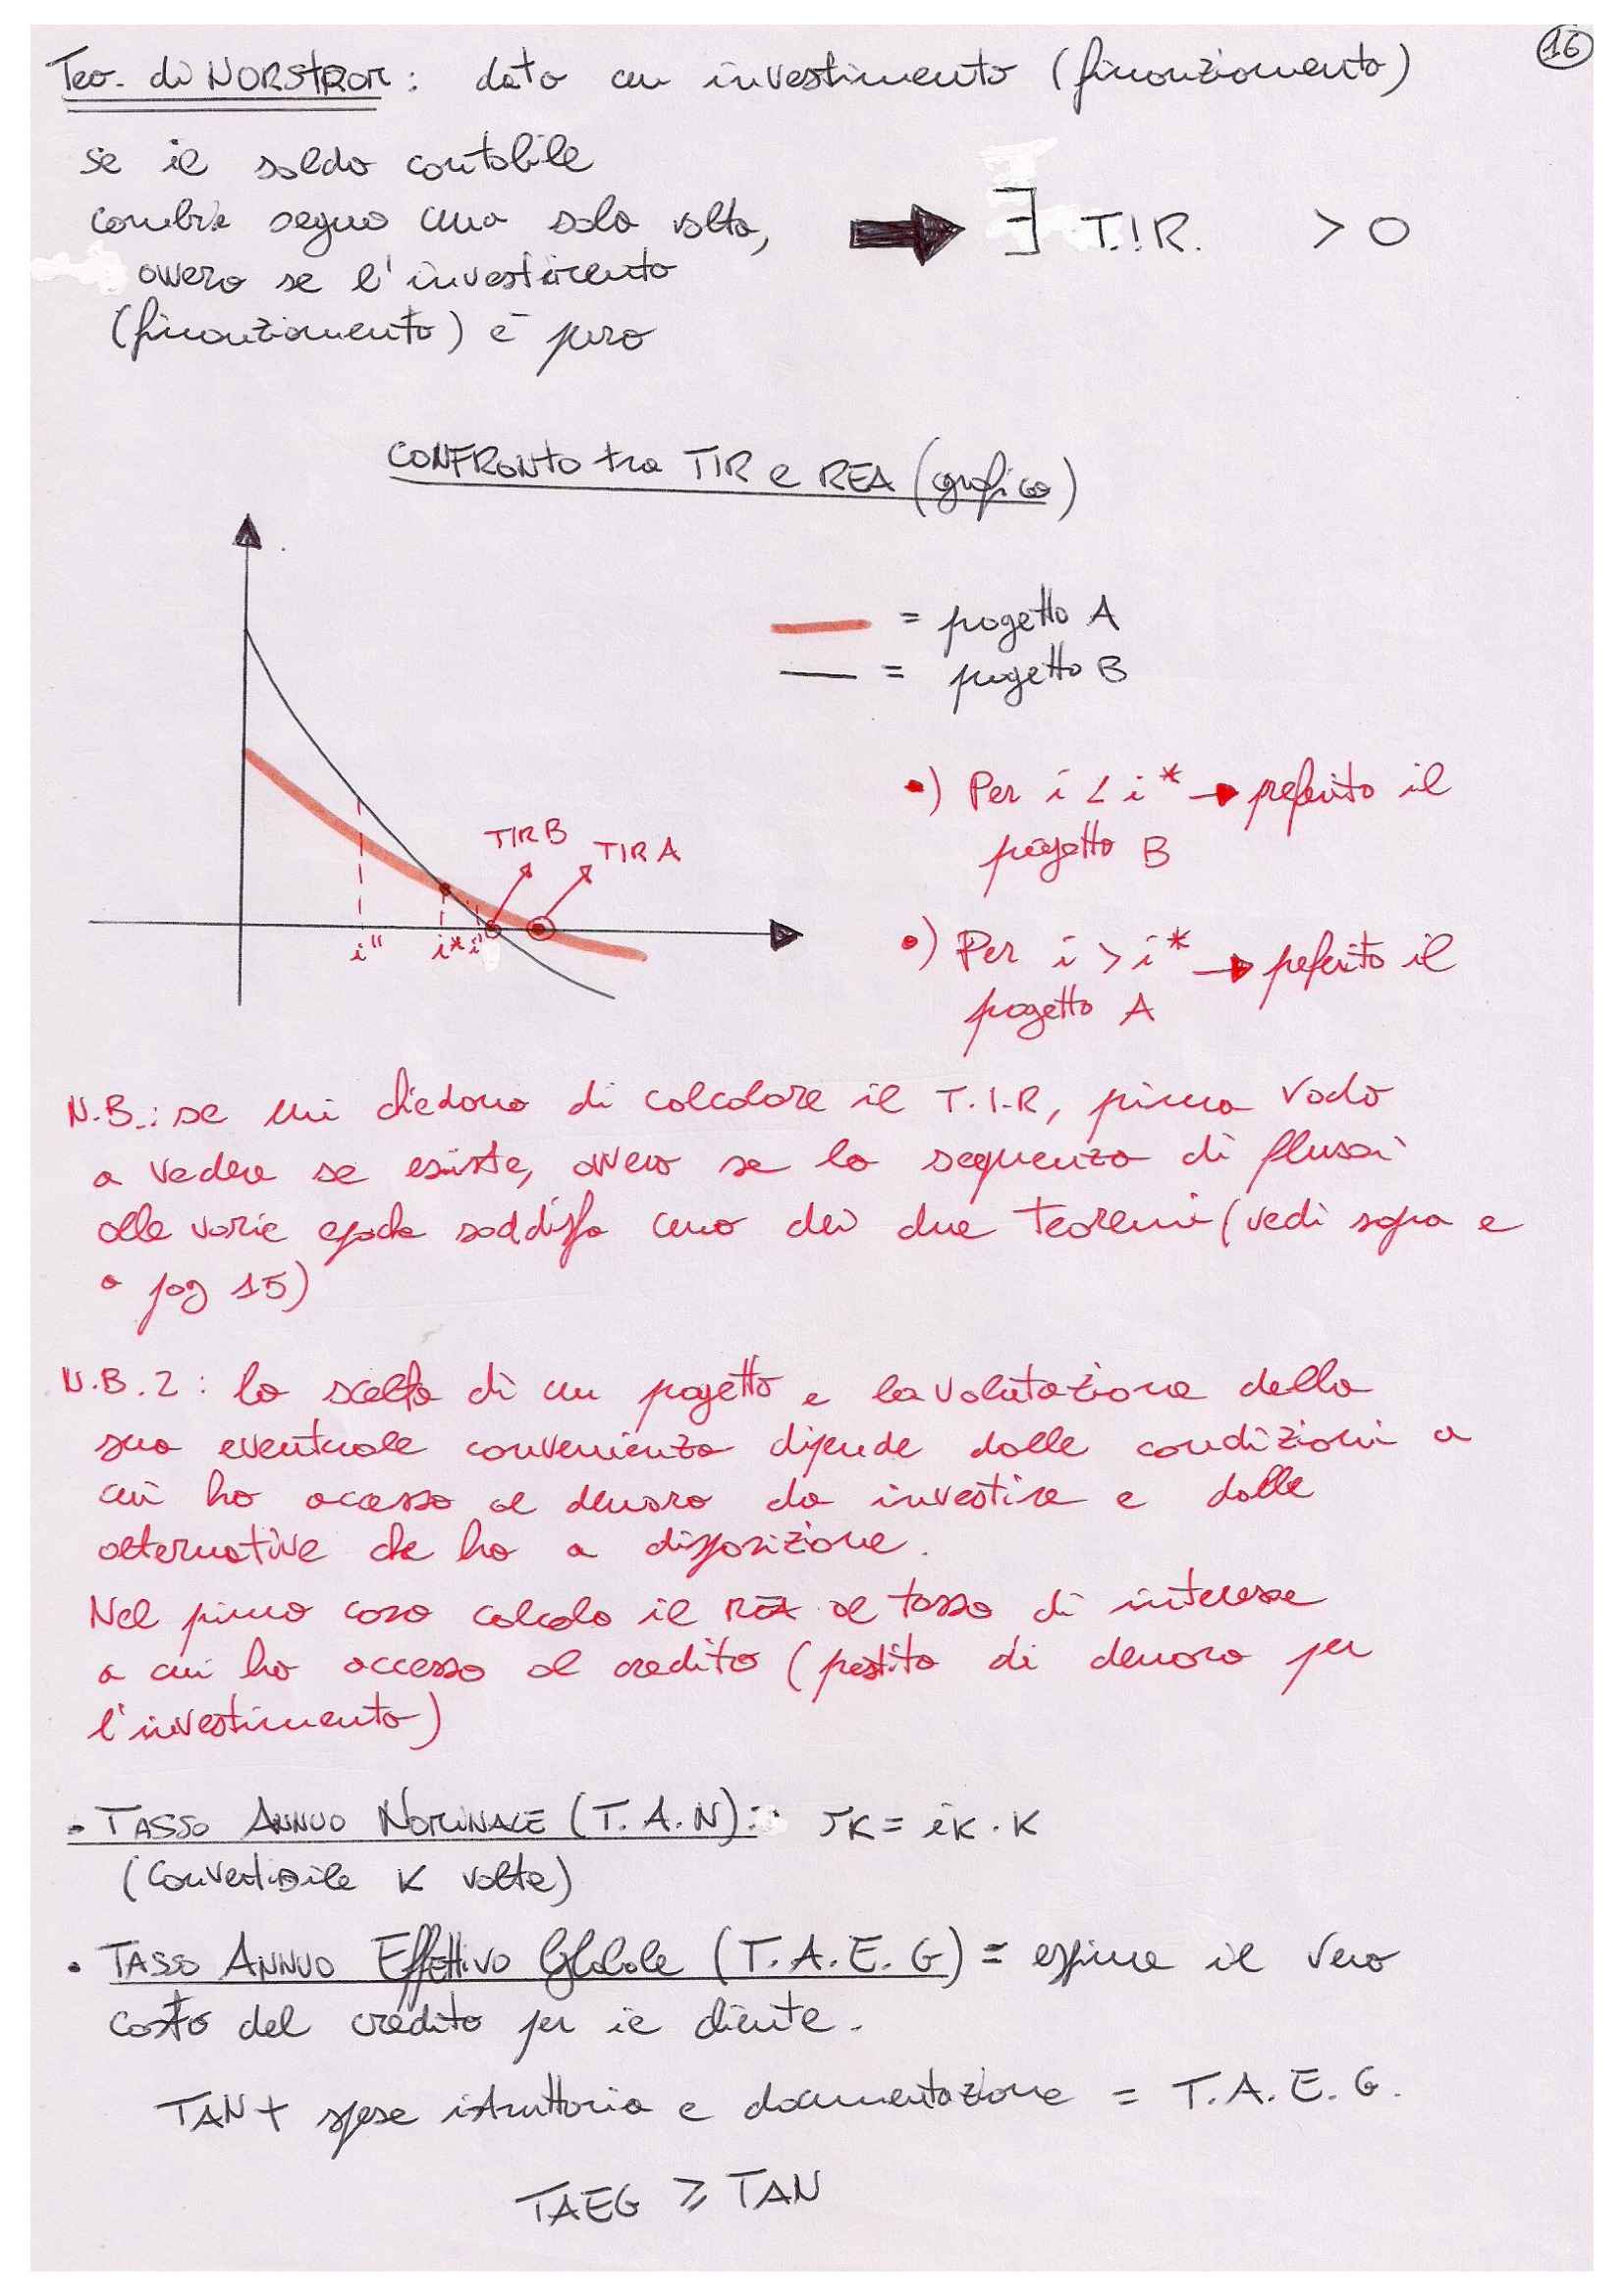 16
Teo. di NORSTROM: dato un investimento (finanziamento)
se il saldo contabile
cambia segno una sola volta,
ovvero se l'investimento
(finanziamento) è puro
∃ T.I.R. > 0
CONFRONTO tra TIR e REA (grafico)
= progetto A
= progetto B
TIR B
TIR A
i" i* i'
•) Per i < i* → preferito il
progetto B
•) Per i > i* → preferito il
progetto A
N.B.: se mi chiedono di calcolare il T.I.R, prima vado
a vedere se esiste, ovvero se la sequenza di flussi
alle varie epoche soddisfa uno dei due teoremi (vedi sopra e
a pag 15)
N.B.2: la scelta di un progetto e la valutazione della
sua eventuale convenienza dipende dalle condizioni a
cui ho accesso al denaro da investire e dalle
alternative che ho a disposizione.
Nel primo caso calcolo il REA al tasso di interesse
a cui ho accesso al credito (prestito di denaro per
l'investimento)
• TASSO ANNUO NOMINALE (T.A.N): JK = iK . K
(Convertibile K volte)
• TASSO ANNUO Effettivo Globale (T.A.E.G) = esprime il vero
costo del credito per il cliente.
TAN + spese istruttoria e documentazione = T.A.E.G.
TAEG ≥ TAN